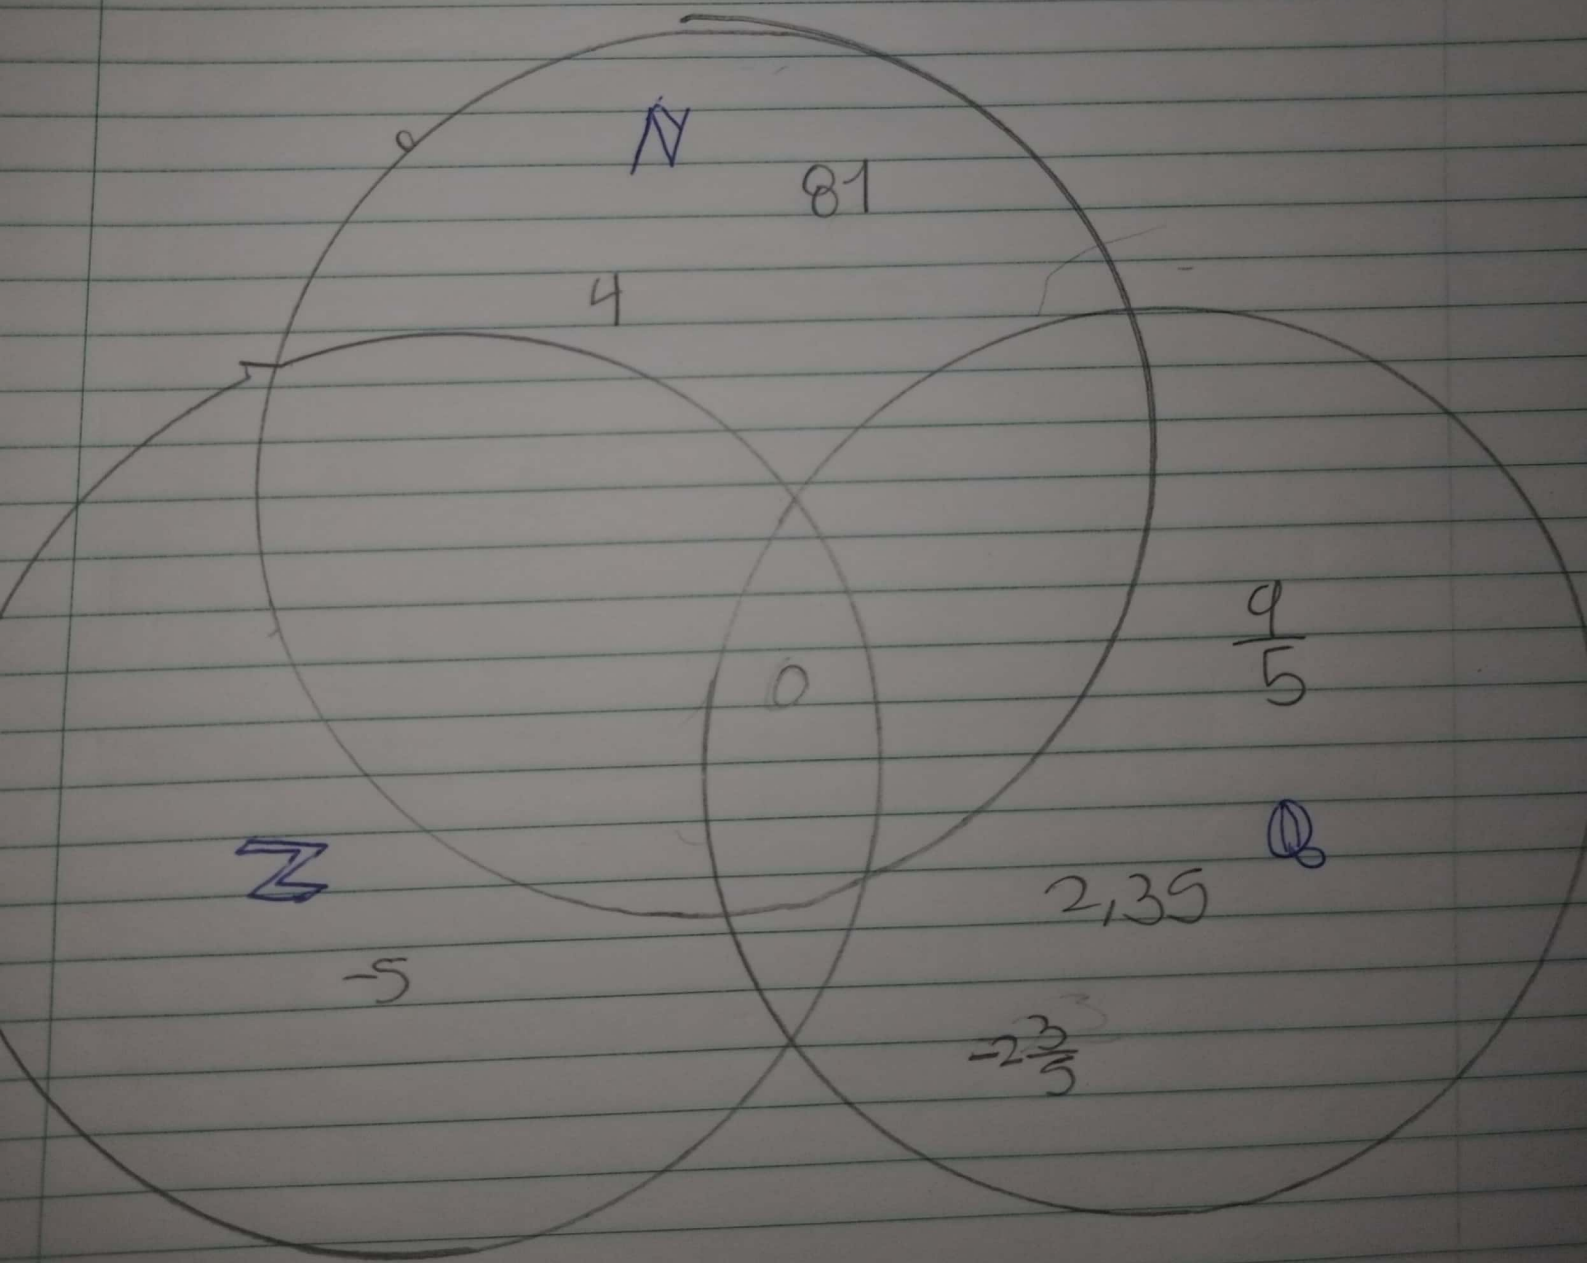 N
81
4
9/5
0
Z
Q
2,35
-5
-2 3/5